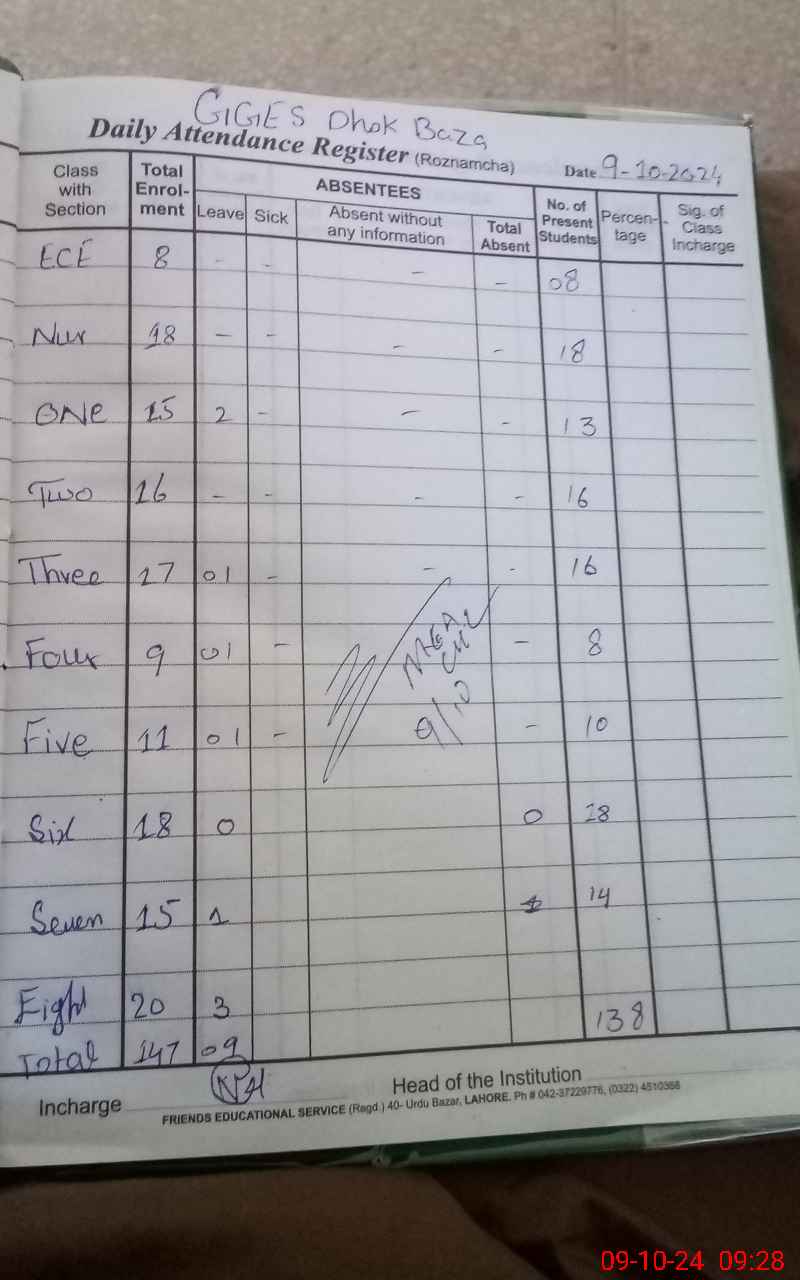 GGES Dhok Baza
Daily Attendance Register (Roznamcha) Date 9-10-2024
Class with Section Total Enrol-ment ABSENTEES Leave Sick Absent without any information Total Absent No. of Present Students Percen-tage Sig. of Class Incharge
ECE 8 - - - - 08
Nur 18 - - - - 18
ONe 15 2 - - - 13
Two 16 - - - - 16
Three 17 01 - - - 16
Four 9 01 - - 8
Five 11 01 - - 10
MEA
9/10
Six 18 0 0 18
Seven 15 1 1 14
Eight 20 3
Total 147 09 138
Incharge Head of the Institution
FRIENDS EDUCATIONAL SERVICE (Regd.) 40- Urdu Bazar, LAHORE. Ph # 042-37229776, (0322) 4510366
09-10-24 09:28